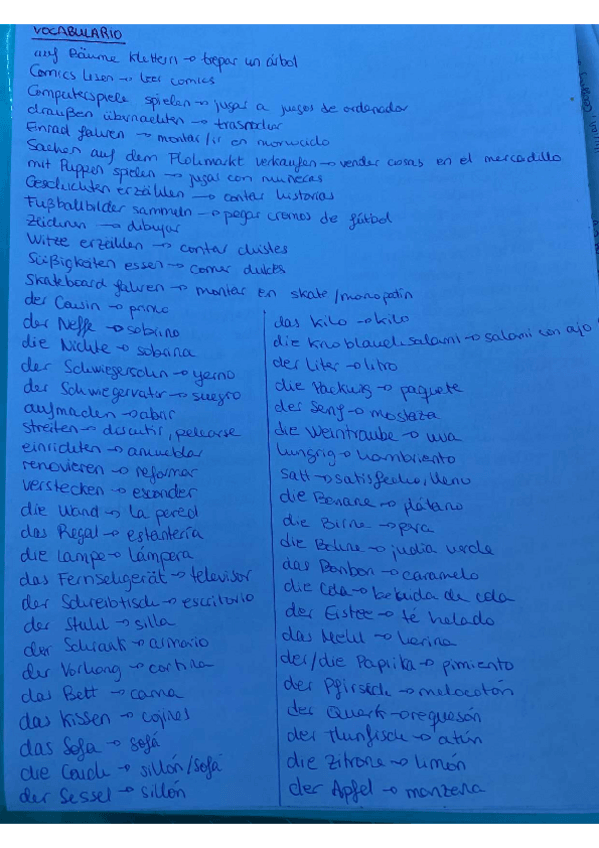 VOCABULARIO
auf Bäume klettern → trepar un árbol
Comics lesen → leer comics
Computerspiele spielen → jugar a juegos de ordenador
draußen übernachten → trasnochar
Einrad fahren → montar/ir en monociclo
Sachen auf dem Flohmarkt verkaufen → vender cosas en el mercadillo
mit Puppen spielen → jugar con muñecas
Geschichten erzählen → contar historias
Fußballbilder sammeln → pegar cromos de fútbol
Zeichnen → dibujar
Witze erzählen → contar chistes
Süßigkeiten essen → comer dulces
Skateboard fahren → montar en skate/monopatín
der Cousin → primo
der Neffe → sobrino
die Nichte → sobrina
der Schwiegersohn → yerno
der Schwiegervater → suegro
aufmachen → abrir
streiten → discutir, pelearse
einrichten → amueblar
renovieren → reformar
verstecken → esconder
die Wand → la pared
das Regal → estantería
die Lampe → lámpara
das Fernsehgerät → televisor
der Schreibtisch → escritorio
der Stuhl → silla
der Schrank → armario
der Vorhang → cortina
das Bett → cama
das Kissen → cojines
das Sofa → sofá
die Couch → sillón/sofá
der Sessel → sillón
das Kilo → kilo
die Knoblauchsalami → salami con ajo
der Liter → litro
die Packung → paquete
der Senf → mostaza
die Weintraube → uva
hungrig → hambriento
satt → satisfecho, lleno
die Banane → plátano
die Birne → pera
die Bohne → judía verde
das Bonbon → caramelo
die Cola → bebida de cola
der Eistee → té helado
das Mehl → harina
der/die Paprika → pimiento
der Pfirsich → melocotón
der Quark → requesón
der Thunfisch → atún
die Zitrone → limón
der Apfel → manzana